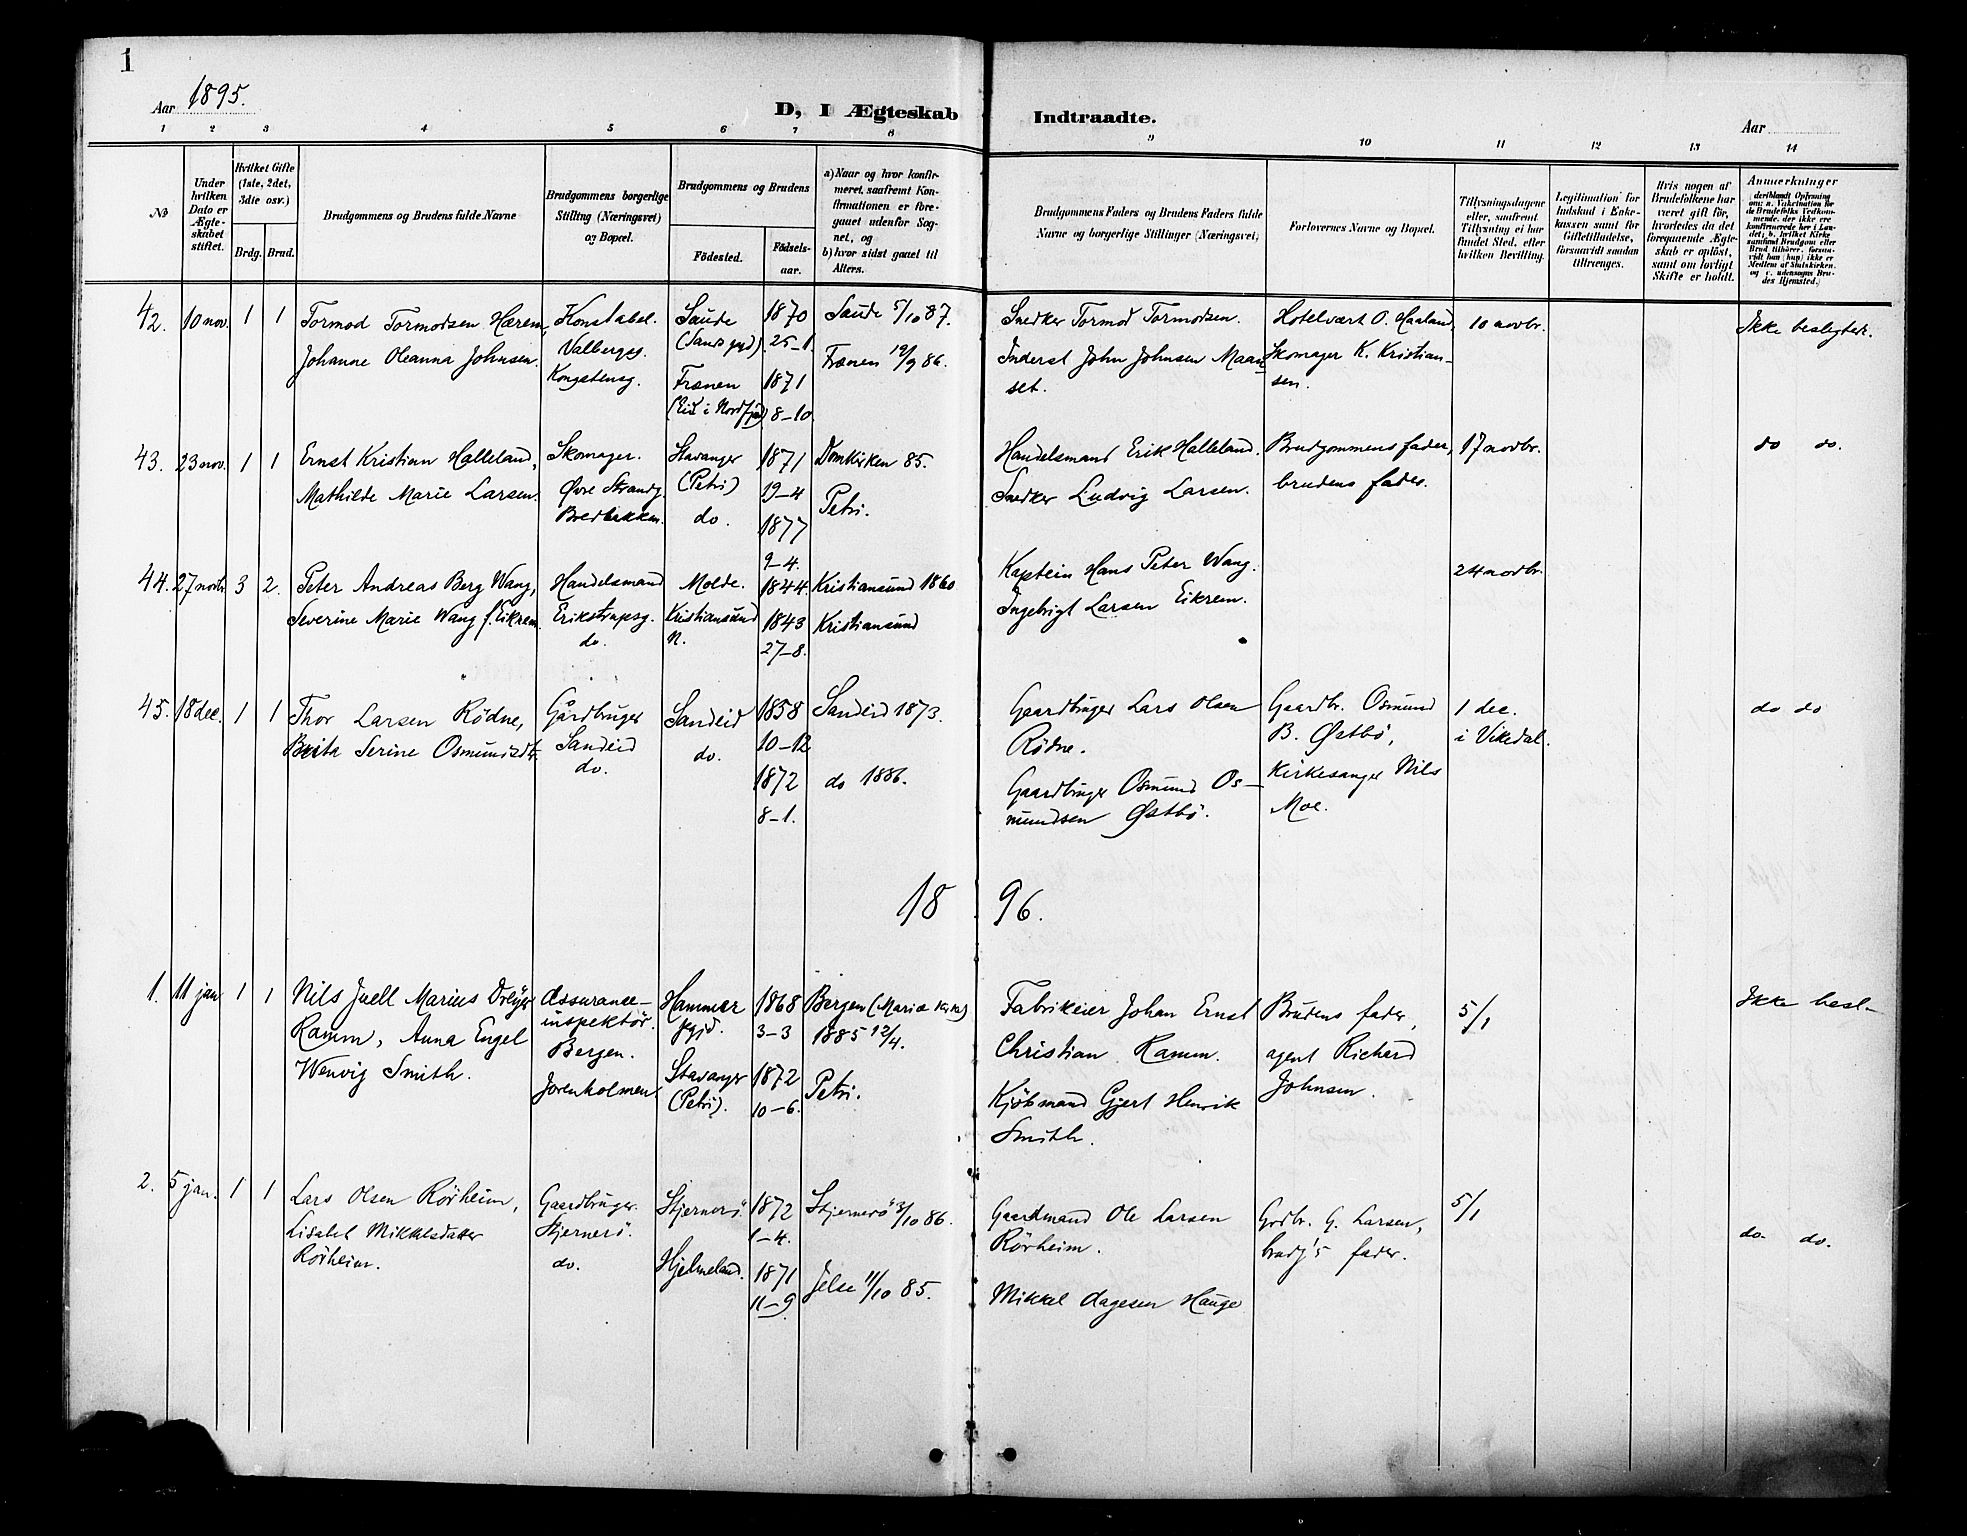 1
Aar 1895.
D, I Ægteskab Indtraadte.
Aar
1 2 3 4 5 6 7 8 9 10 11 12 13 14
No
Under hvilken Dato er Ægteskabet stiftet.
Hvilket Gifte (1ste, 2det, 3die osv.)
Brdg. Brud.
Brudgommens og Brudens fulde Navne
Brudgommens borgerlige Stilling (Næringsvei) og Bopæl.
Brudgommens og Brudens
Fødested.
Fødselsaar.
a) Naar og hvor konfirmeret, saafremt Konfirmationen er foregaaet udenfor Sognet, og
b) hvor sidst gaaet til Alters.
Brudgommens Faders og Brudens Faders fulde Navne og borgerlige Stillinger (Næringsvei)
Forlovernes Navne og Bopæl.
Tillysningsdagene eller, saafremt Tillysning ei har fundet Sted, efter hvilken Bevilling.
Legitimation for Indskud i Enkekassen samt for Giftetilladelse, forsaavidt saadan tiltrænges.
Hvis nogen af Brudefolkene har været gift før, hvorledes da det foregaaende Ægteskab er opløst, samt om lovligt Skifte er holdt.
Anmærkninger
deriblandt Oplysning om: a. Vakcination for de Brudefolks Vedkommende, der ikke ere konfirmerede her i Landet; b. hvilket Kirkesamfund Brudgom eller Brud tilhører, forsaavidt han (hun) ikke er Medlem af Statskirken, og c. udensogns Brudes Hjemsted.)
42. 10 nov. 1 1
Tormod Tormodsen Hærem,
Johanne Oleanna Johnsen.
Konstabel.
Valbergg.
Kongstensg.
Saude
(Sands pgd)
Frænen
(Eid i Nordfjord)
1870
25-1.
1871
8-10.
Saude 5/10 87.
Frænen 19/9 86.
Snedker Tormod Tormodsen.
Inderst John Johnsen Maan
set.
Hotelvært O. Haaland,
Skomager K. Kristian-
sen.
10 novbr.
Ikke beslegtet.
43. 23 nov. 1 1
Ernst Kristian Halleland,
Mathilde Marie Larsen.
Skomager.
Øvre Strandg.
Bredbakken.
Stavanger
(Petri)
do.
1871
19-4
1877
9-4.
Domkirken 85.
Petri.
Handelsmand Erik Halleland.
Snedker Ludvig Larsen.
Brudgommens fader,
brudens fader.
17 novbr.
do do.
44. 27 novbr 3 2.
Peter Andreas Berg Wang,
Severine Marie Wang f. Eikrem.
Handelsmand
Erikstrupsg.
do.
Molde.
Kristiansund
N.
1844.
1843
27-8.
Kristiansund 1860
Kristiansund
Kaptein Hans Peter Wang.
Ingebrigt Larsen Eikrem.
24 novbr.
45. 18 dec. 1 1
Thor Larsen Rödne,
Brita Serine Osmundsdtr.
Gårdbruger
Sandeid
do.
Sandeid
do.
1858
10-12
1872
8-1.
Sandeid 1873.
do 1886.
Gaardbruger Lars Olsen
Rödne.
Gaardbruger Osmund Os-
mundsen Østbö.
Gaardbr. Osmund
B. Østbö,
Kirkesanger Nils
Moe.
1 dec.
i Vikedal.
do do
18 96.
1. 11 jan 1 1
Nils Juell Marius Dreÿer
Ramm, Anna Engel
Wenvig Smith.
Assurance-
inspektör.
Bergen.
Jorenholmen.
Hammer
pgjd.
Stavanger
(Petri).
1868
3-3
1872
10-6.
Bergen (Maria kirke)
1885 12/4.
Petri.
Fabrikeier Johan Ernst
Christian Ramm.
Kjöbmand Gjert Henrik
Smith.
Brudens fader,
agent Richard
Johnsen.
5/1
Ikke besl-
2. 5 jan. 1 1
Lars Olsen Rörheim,
Lisabet Mikkelsdatter
Rörheim.
Gaardbruger.
Stjernerö.
do.
Stjernerö.
Hjelmeland.
1872
1-4.
1871
11-9
Stjernerö 3/10 86.
Jelse 11/10 85.
Gaardmand Ole Larsen
Rörheim.
Mikkel Aagesen Hauge
Grdbr. G. Larsen,
brudg's fader.
5/1
do. do.